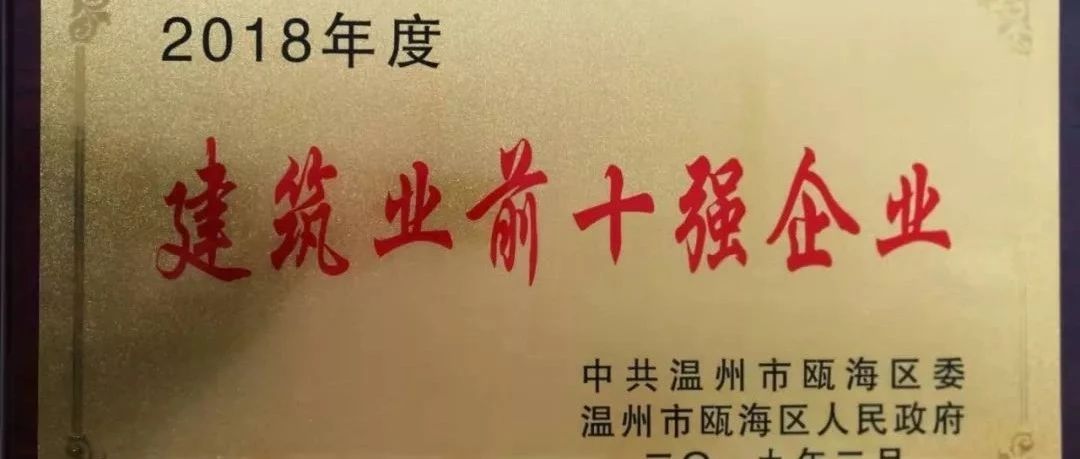 2018年度
建筑业前十强企业
中共温州市瓯海区委
温州市瓯海区人民政府
二〇一九年二月